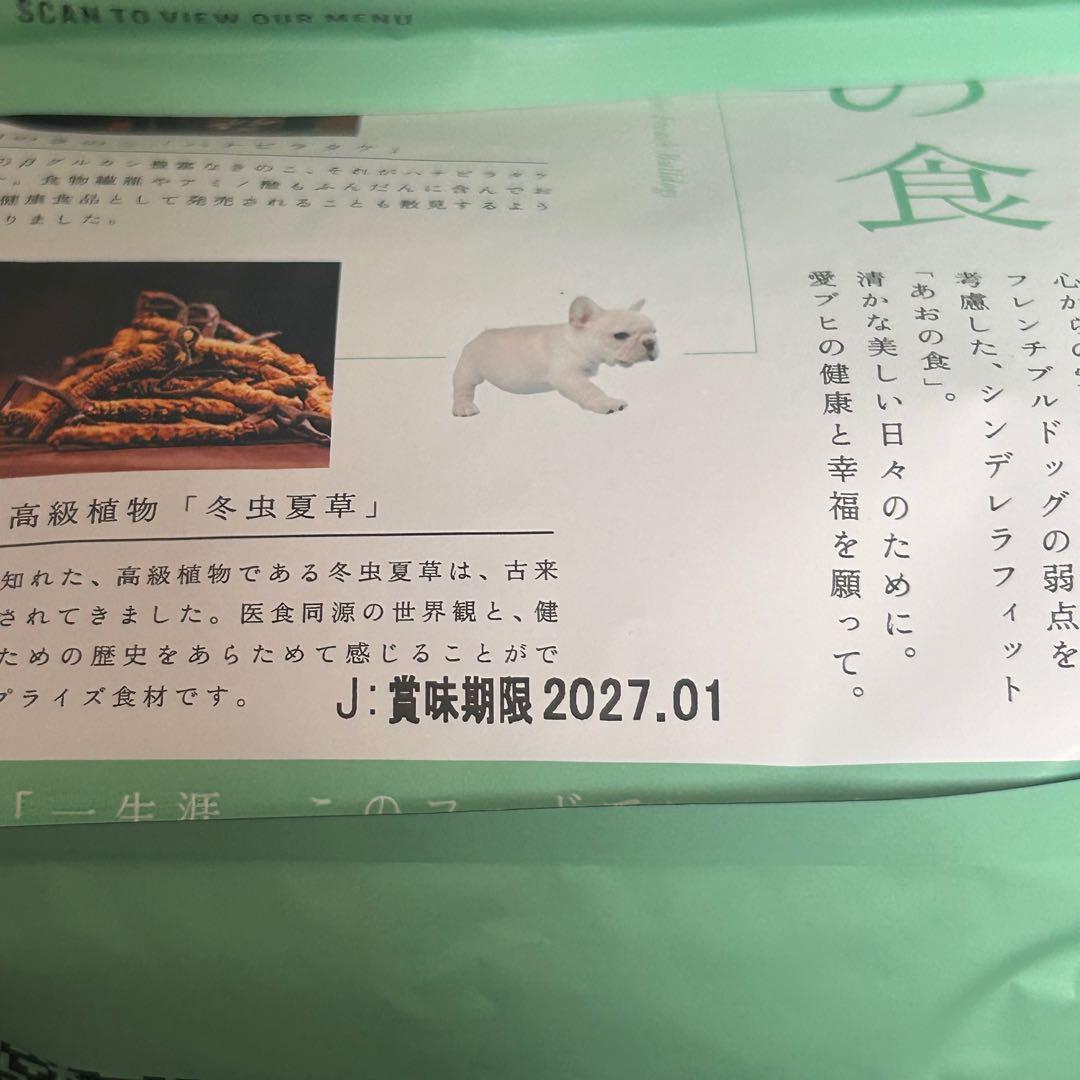 SCAN TO VIEW OUR MENU
の食
心から
フレンチブルドッグの弱点を
考慮した、シンデレラフィット
「あおの食」。
清かな美しい日々のために。
愛ブヒの健康と幸福を願って。
のβグルカン豊富なきのこ、それがハナビラタケ
。食物繊維やアミノ酸もふんだんに含んでお
健康食品として発売されることも散見するよう
りました。
高級植物「冬虫夏草」
知れた、高級植物である冬虫夏草は、古来
されてきました。医食同源の世界観と、健
ための歴史をあらためて感じることがで
プライズ食材です。
J:賞味期限2027.01
「一生涯、このフードで